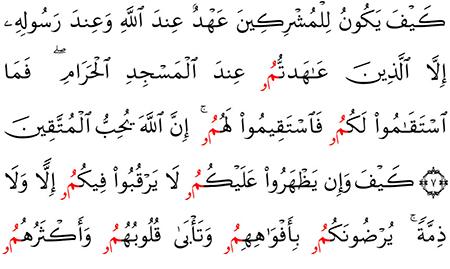 كَيْفَ يَكُونُ لِلْمُشْرِكِينَ عَهْدٌ عِندَ ٱللَّهِ وَعِندَ رَسُولِهِۦ
إِلَّا ٱلَّذِينَ عَٰهَدتُّمُۥ عِندَ ٱلْمَسْجِدِ ٱلْحَرَامِۖ فَمَا
ٱسْتَقَٰمُوا۟ لَكُمُۥ فَٱسْتَقِيمُوا۟ لَهُمُۥۚ إِنَّ ٱللَّهَ يُحِبُّ ٱلْمُتَّقِينَ
﴿٧﴾ كَيْفَ وَإِن يَظْهَرُوا۟ عَلَيْكُمُۥ لَا يَرْقُبُوا۟ فِيكُمُۥ إِلًّا وَلَا
ذِمَّةًۚ يُرْضُونَكُمُۥ بِأَفْوَٰهِهِمُۥ وَتَأْبَىٰ قُلُوبُهُمُۥ وَأَكْثَرُهُمُۥ